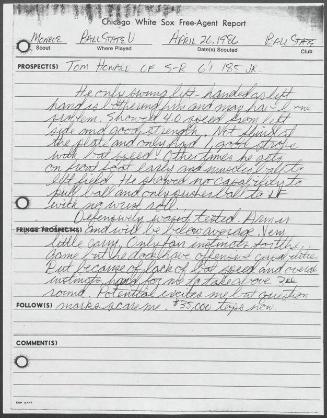 Chicago White Sox Free-Agent Report
Monroe Ball State U April 26, 1986 Ball State
Scout Where Played Date(s) Scouted Club
PROSPECT(S) Tom CF S-R 6'1 185 JR.
He only swung left-handed as left
hand is bothering him and may have
problem. Showed 4.0 speed from left
side and good strength. Not
the plate and only had 1 good stroke
with bat speed. Other times he gets
on front foot early and muscles ball to
left field. He showed no capability to
pull ball and only pushes ball to LF
with no wrist roll.
Defensively wasn't tested. Arm is
FRINGE PROSPECT(S) and will be below average. Very
little carry. Only fair instincts for the
game but he does have offensive capabilities.
But because of lack of bat speed and overall
instincts hard for me to take above 3rd
round. Potential excites me but question
FOLLOW(S) marks scare me. $35,000 tops now.
COMMENT(S)